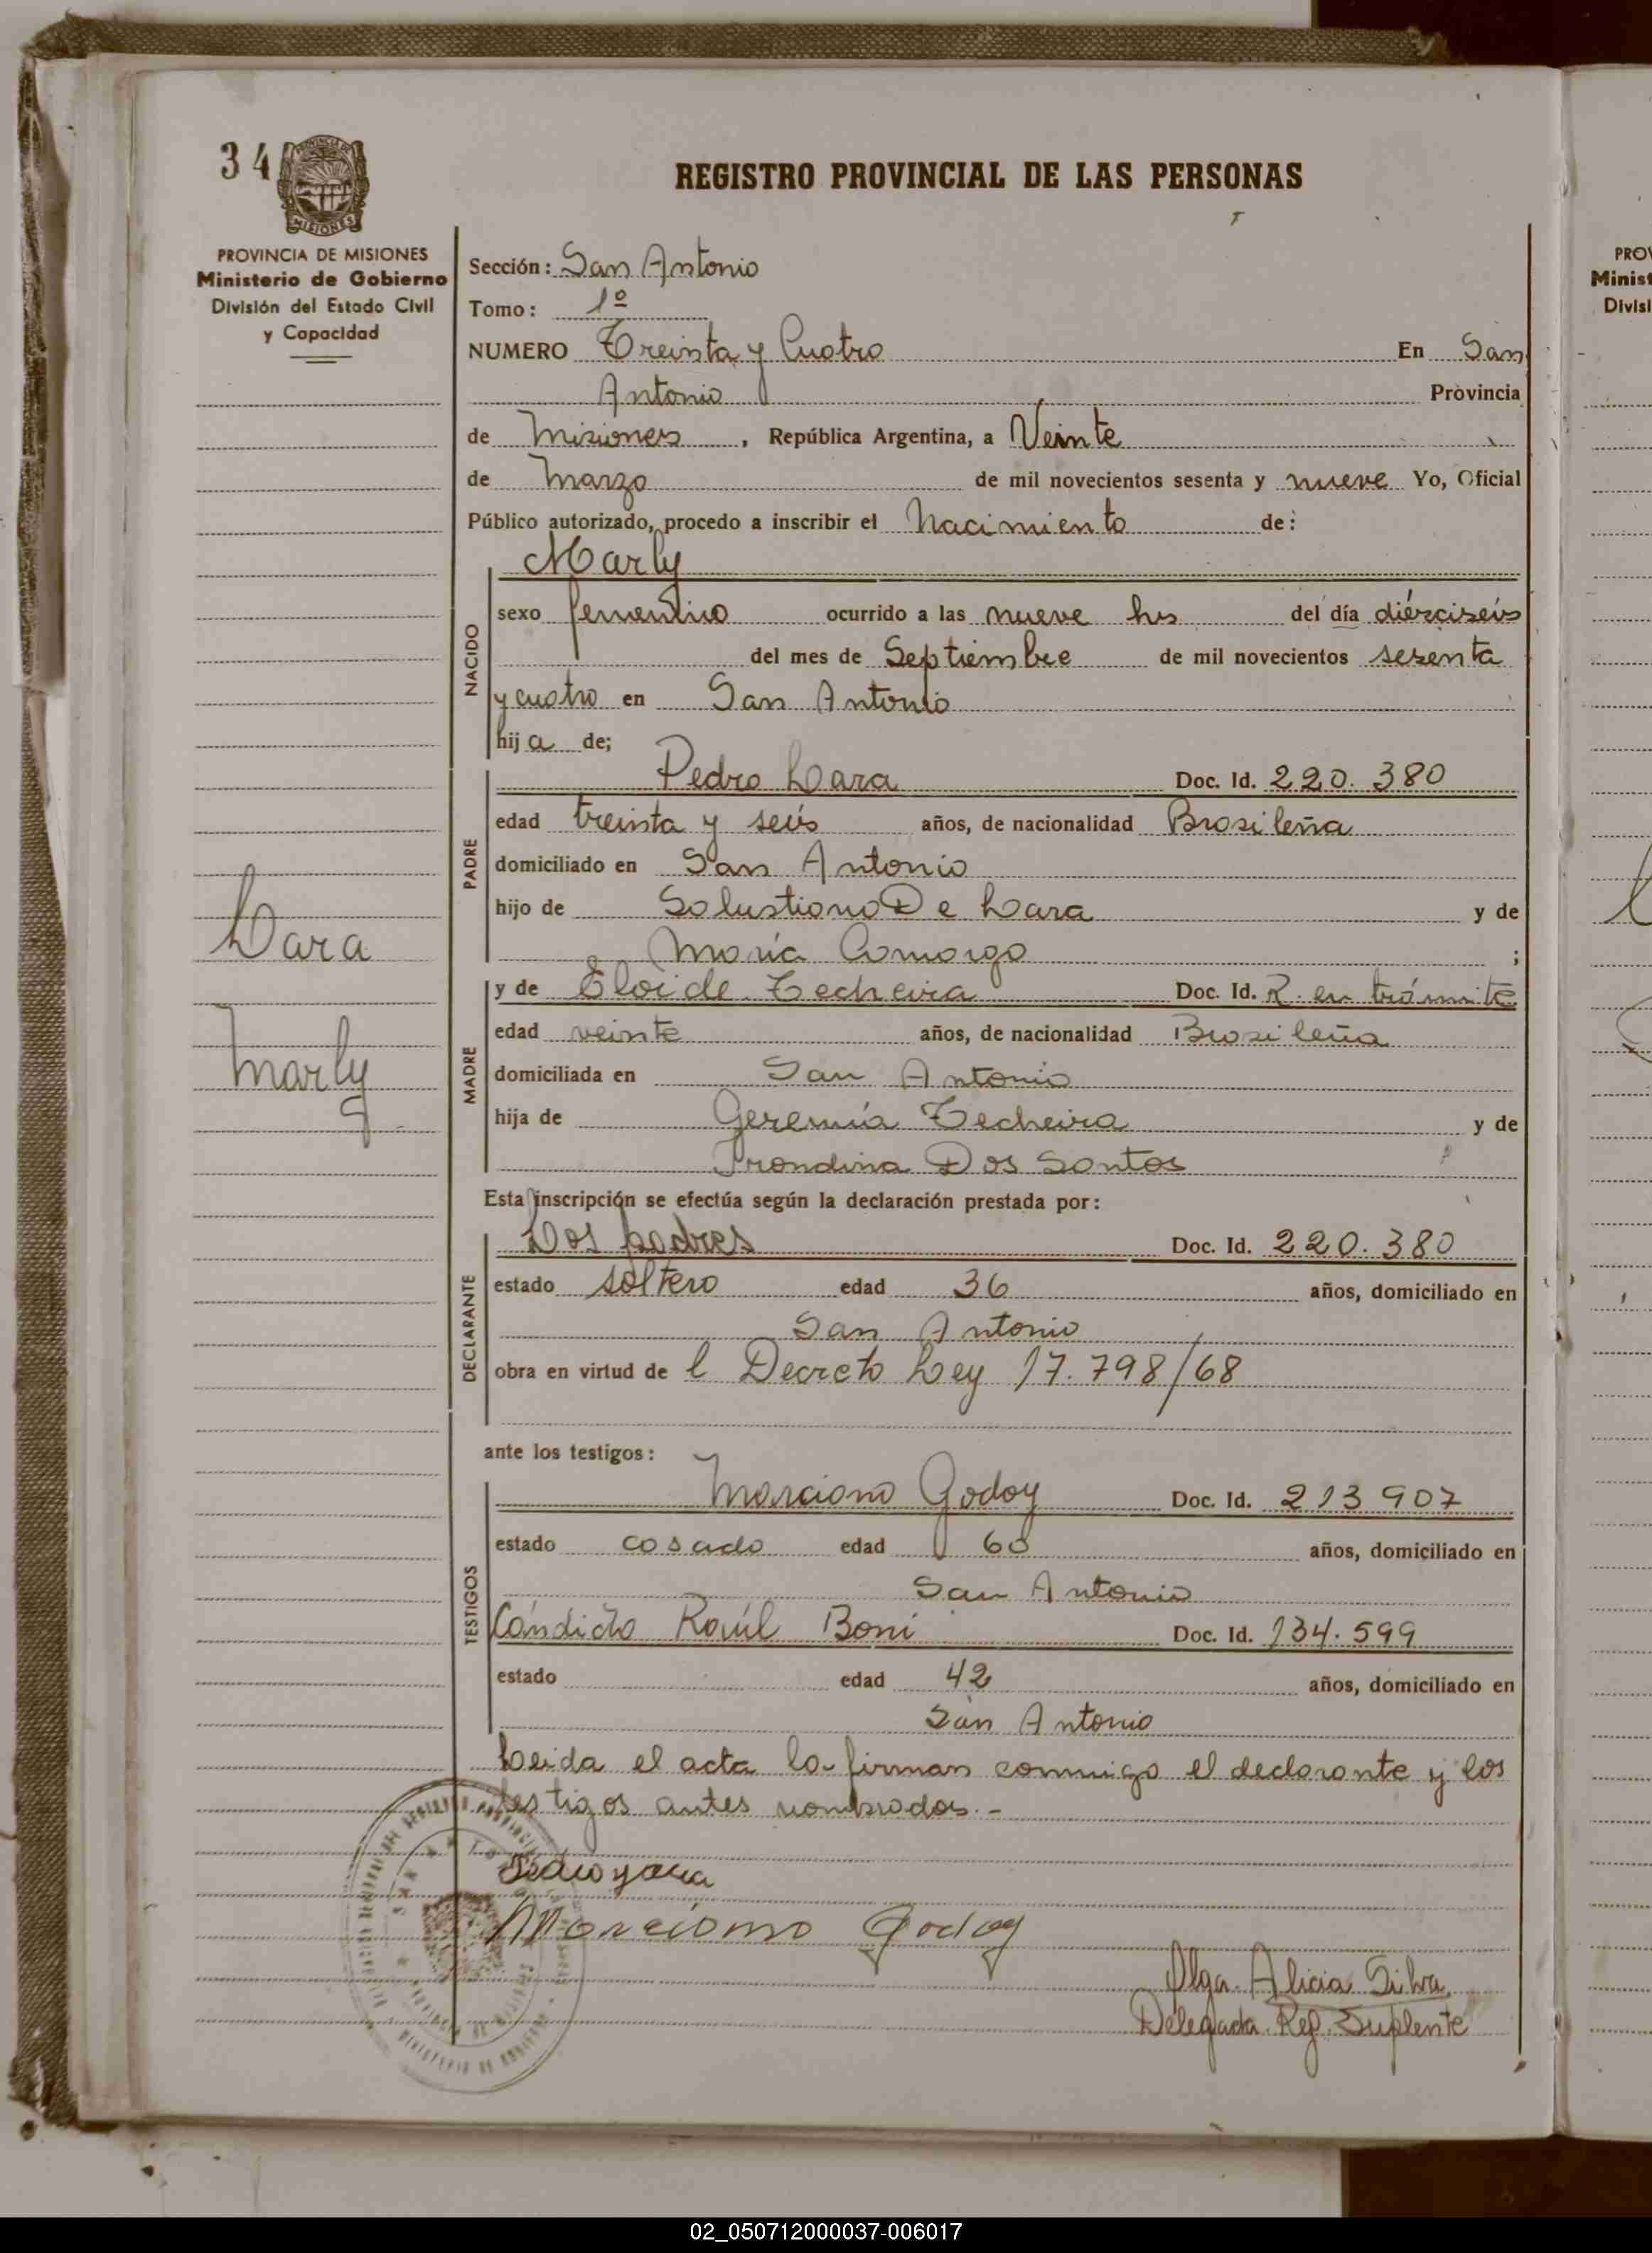 34
PROVINCIA DE MISIONES
Ministerio de Gobierno
División del Estado Civil
y Capacidad
REGISTRO PROVINCIAL DE LAS PERSONAS
Sección: San Antonio
Tomo: 1º
NUMERO Treinta y Cuatro En San
Antonio Provincia
de Misiones, República Argentina, a Veinte
de Marzo de mil novecientos sesenta y nueve Yo, Oficial
Público autorizado, procedo a inscribir el Nacimiento de:
Marly
NACIDO
sexo femenino ocurrido a las nueve hs del día diéciseis
del mes de Septiembre de mil novecientos sesenta
y cuatro en San Antonio
hija de;
PADRE
Pedro Lara Doc. Id. 220.380
edad treinta y seis años, de nacionalidad Brasileña
domiciliado en San Antonio
hijo de Solustiano De Lara y de
María Camargo ;
MADRE
y de Eloide Techeira Doc. Id. R. en trámite
edad veinte años, de nacionalidad Brasileña
domiciliada en San Antonio
hija de Geremía Techeira y de
Dos Santos
Esta inscripción se efectúa según la declaración prestada por:
DECLARANTE
Los padres Doc. Id. 220.380
estado soltero edad 36 años, domiciliado en
San Antonio
obra en virtud de l Decreto Ley 17.798/68
ante los testigos:
TESTIGOS
Marciano Godoy Doc. Id. 213 907
estado casado edad años, domiciliado en
San Antonio
Cándido Raúl Boni Doc. Id. 134.599
estado edad 42 años, domiciliado en
San Antonio
Leida el acta la firman conmigo el declarante y los
testigos antes nombrados.-
Lara
Marly
Marciano Godoy
Olga Alicia Silva
Delegada Reg. Suplente
PROV
Minist
Divisi
02_050712000037-006017